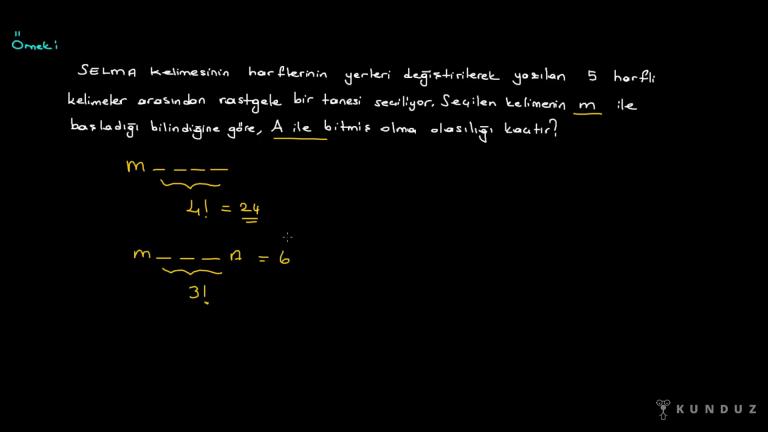 Örnek:
SELMA kelimesinin harflerinin yerleri değiştirilerek yazılan 5 harfli
kelimeler arasından rastgele bir tanesi seçiliyor. Seçilen kelimenin m ile
başladığı bilindiğine göre, A ile bitmiş olma olasılığı kaçtır?
m _ _ _ _
4! = 24
m _ _ _ A = 6
3!
KUNDUZ